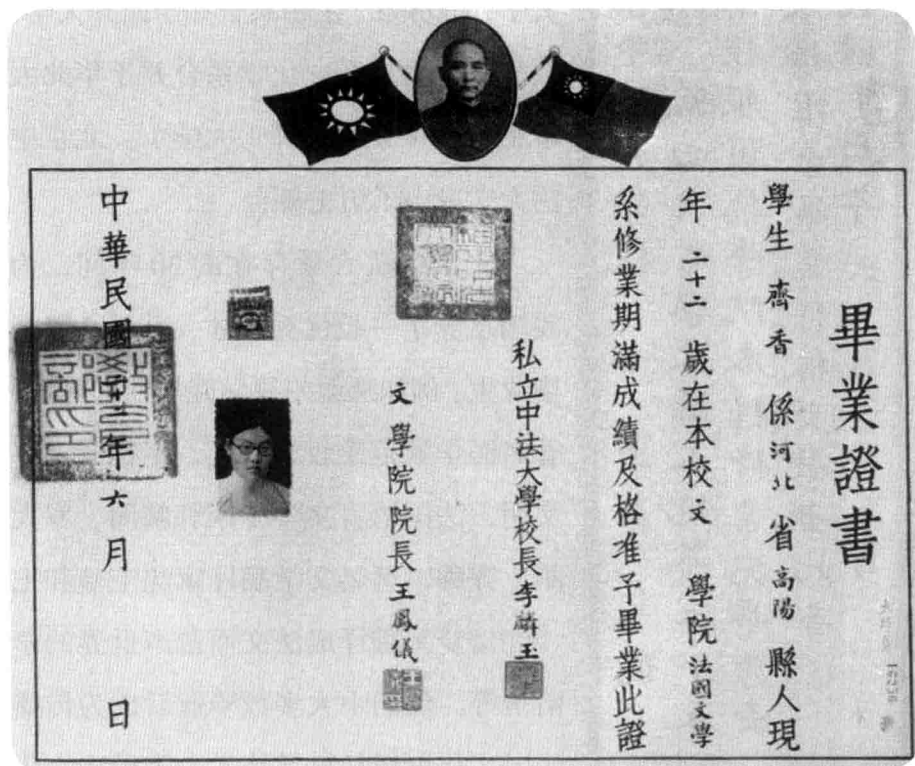 畢業證書
學生 齊香 係 河北 省 高陽 縣人現
年 二十二 歲在本校 文 學院 法國文學
系修業期滿成績及格准予畢業此證
私立中法大學校長李麟玉
文 學院院長王鳳儀
中華民國 年 六 月 日